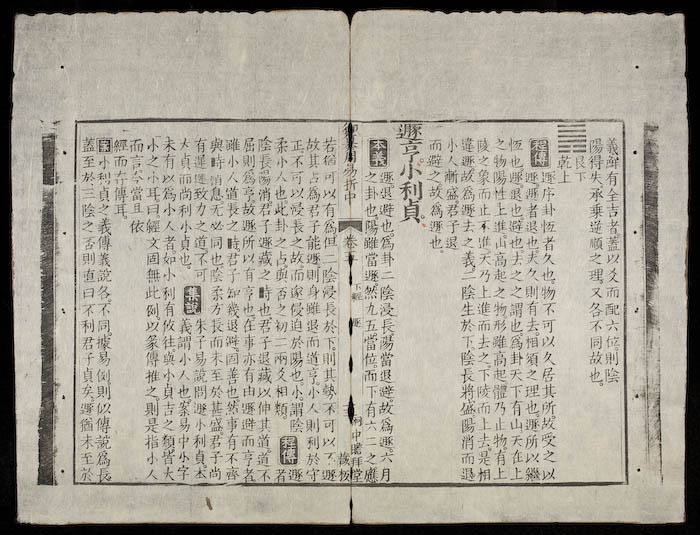 義辭有全吉者蓋以爻而配六位則陰
陽得失承乘逆順之理又各不同故也
艮下
乾上
程傳
遯序卦恆者久也物不可以久居其所故受之以
遯遯者退也夫久則有去相須之理也遯所以繼
恆也遯退也避也去之之謂也爲卦天下有山天在上
之物陽性上進山高起之物形雖高起體乃止物有上
陵之象而止不進天乃上進而去之下陵而上去是相
違遯故爲遯去之義二陰生於下陰長將盛陽消而退
小人漸盛君子退
而避之故爲遯也
遯亨小利貞
本義
遯退避也爲卦二陰浸長陽當退避故爲遯六月
之卦也陽雖當遯然九五當位而下有六二之應
御纂周易折中
卷五
下經 遯
中贈拜堂
藏板
若猶可以有爲但二陰浸長於下則其勢不可以不遯
故其占爲君子能遯則身雖退而道亨小人則利於守
正不可以浸長之故而遂侵迫於陽也小謂陰
柔小人也此卦之占與否之初二兩爻相類
程傳
遯者
陰長陽消君子遯藏之時也君子退藏以伸其道道不
屈則爲亨故遯所以有亨也在事亦有由遯避而亨者
雖小人道長之時君子知幾退避固善也然事有不齊
與時消息无必同也陰柔方長而未至於甚盛君子尚
有遲遲致力之道不可
大貞而尚利小貞也
集說
朱子易說問遯小利貞本
義謂小人也案易中小字
未有以爲小人者如小利有攸往與小貞吉之類皆大
小之小耳曰經文固無此例以彖傳推之則是指小人
而言今當且依
經而存傳耳
案
小利貞之義傳義說各不同據易例則似傳說爲長
蓋至於三陰之否則直曰不利君子貞矣遯猶未至於